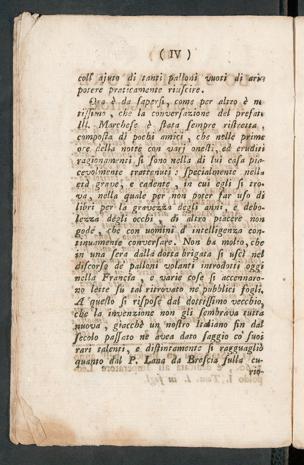 ( IV )
coll' ajuto di tanti palloni vuoti di aria
potere praticamente riuscire.
Ora è da sapersi, come per altro è no-
tissimo, che la conversazione del prefato
Ill. Marchese è stata sempre ristretta,
composta di pochi amici, che nelle prime
ore della notte con varj onesti, ed eruditi
ragionamenti si sono nella di lui casa pia-
cevolmente trattenuti: specialmente nella
età grave, e cadente, in cui egli si tro-
va, nella quale per non poter far uso di
libri per la gravezza degli anni, e debo-
lezza degli occhi, di altro piacere non
gode, che con uomini d' intelligenza con-
tinuamente conversare. Non ha molto, che
in una sera dalla dotta brigata si uscì nel
discorso de' palloni volanti introdotti oggi
nella Francia, e varie cose si accennaro-
no lette su tal ritrovato ne' pubblici fogli.
A questo si rispose dal dottissimo vecchio,
che la invenzione non gli sembrava tutta
nuova, giacchè un nostro Italiano fin dal
secolo passato ne avea dato saggio co' suoi
rari talenti, e distintamente si ragguagliò
quanto dal P. Lana da Brescia sulla cu-
rio-